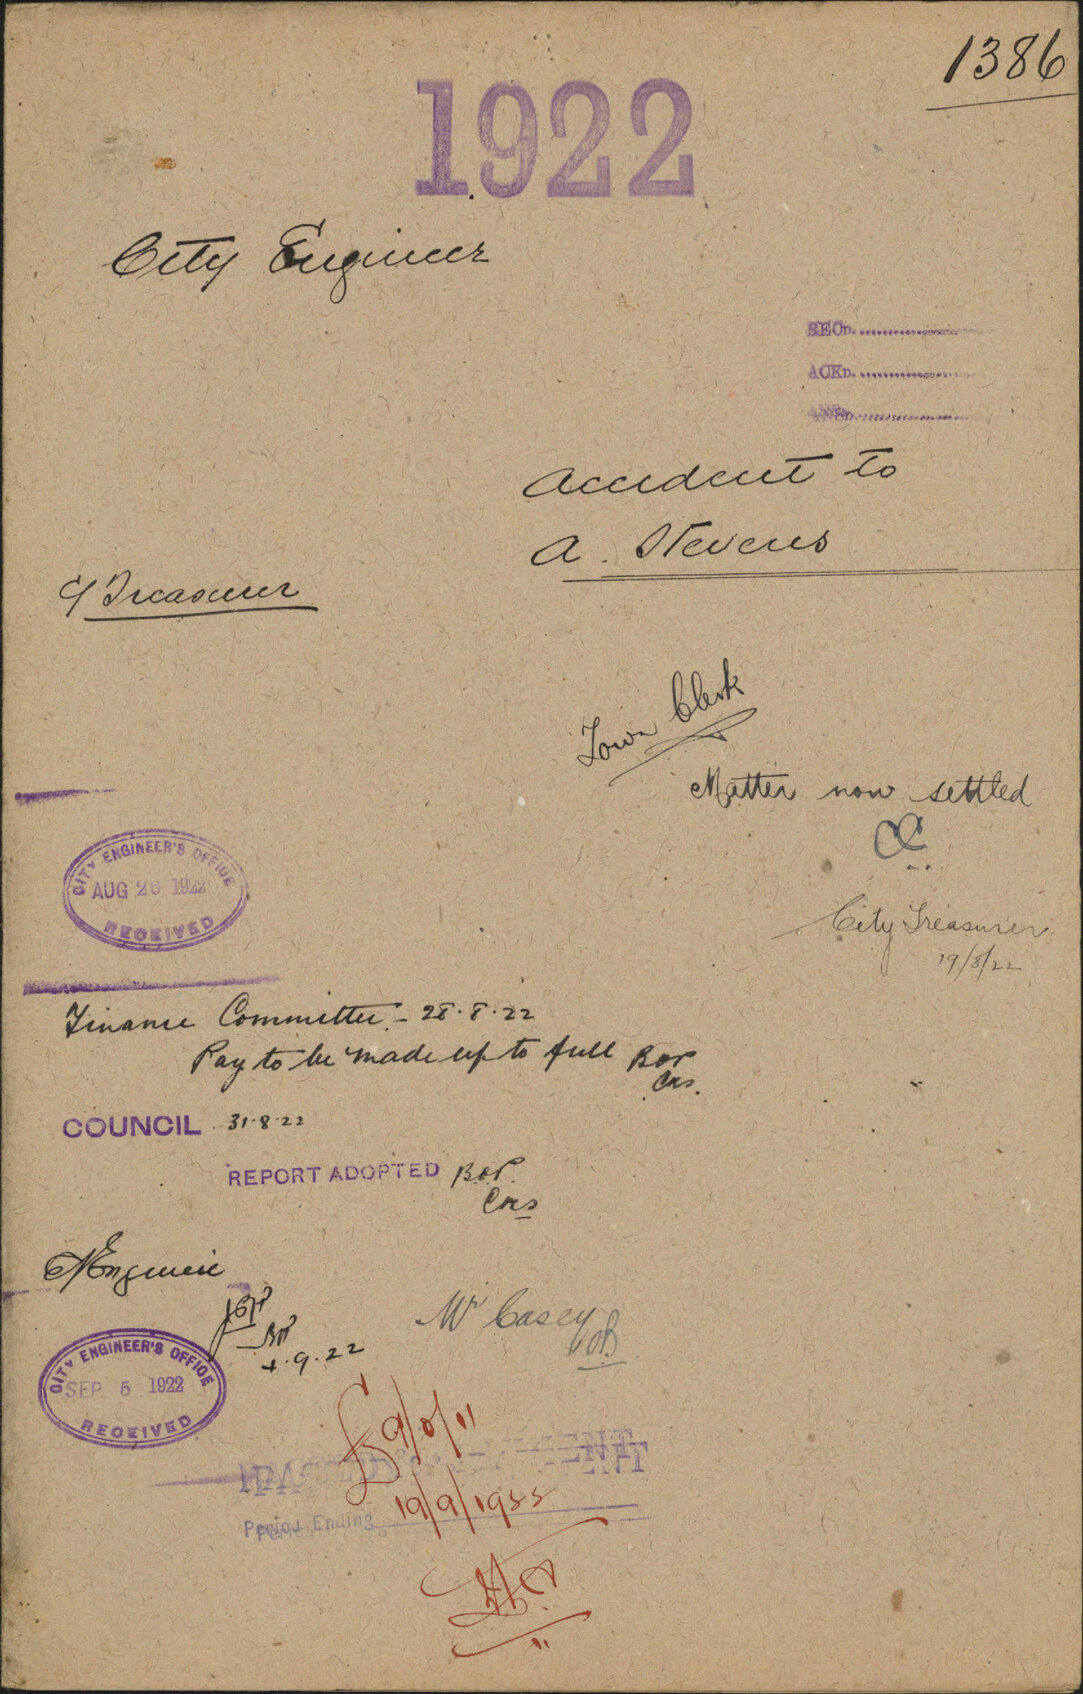 1386
1922
City Engineer
RECD.
ACKD.
ANSD.
Accident to
A. Stevens
C/Treasurer
Town Clerk
Matter now settled
CITY ENGINEER'S OFFICE
AUG 26 1922
RECEIVED
City Treasurer
19/8/22
Finance Committee - 28.8.22
Pay to be made up to full
COUNCIL 31.8.22
REPORT ADOPTED
Engineer
9.22
Mr Casey
CITY ENGINEER'S OFFICE
SEP 5 1922
RECEIVED
£9/0/11
Period Ending 19/9/1922